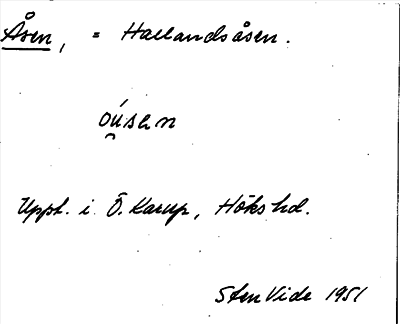 Åsen, = Hallandsåsen.
óu̯sen
Uppt. i Ö. Karup, Höks hd.
Sten Vide 1951